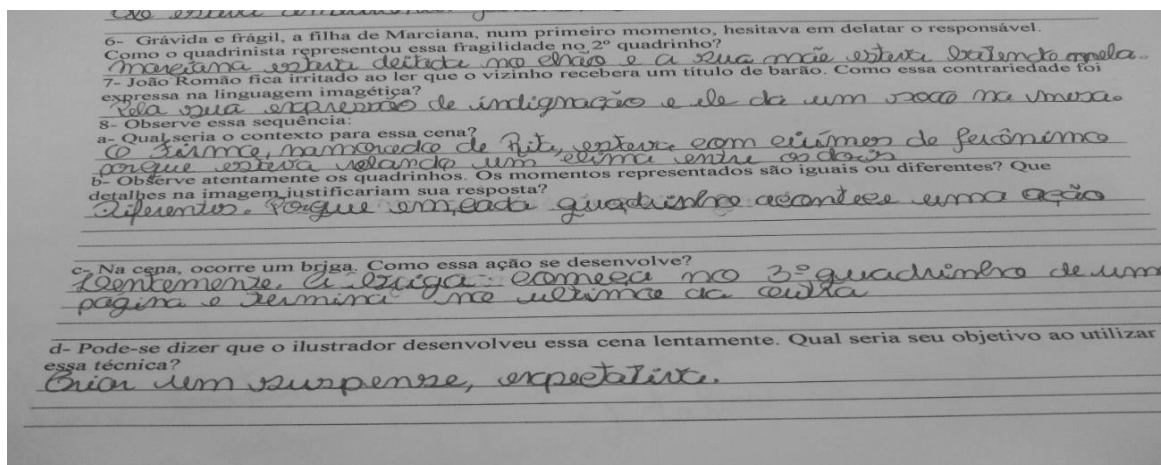 6- Grávida e frágil, a filha de Marciana, num primeiro momento, hesitava em delatar o responsável.
Como o quadrinista representou essa fragilidade no 2º quadrinho?
Marciana estava deitada no chão e a sua mãe estava batendo nela.
7- João Romão fica irritado ao ler que o vizinho recebera um título de barão. Como essa contrariedade foi
expressa na linguagem imagética?
Pela sua expressão de indignação e ele da um soco na mesa.
8- Observe essa sequência:
a- Qual seria o contexto para essa cena?
O Firmo, namorado de Rita, estava com ciúmes de Jerônimo
porque estava rolando um clima entre os dois
b- Observe atentamente os quadrinhos. Os momentos representados são iguais ou diferentes? Que
detalhes na imagem justificariam sua resposta?
Diferentes. Porque em cada quadrinho acontece uma ação
c- Na cena, ocorre um briga. Como essa ação se desenvolve?
Lentemente, a briga começa no 3º quadrinho de uma
página e termina no ultimo da outra
d- Pode-se dizer que o ilustrador desenvolveu essa cena lentamente. Qual seria seu objetivo ao utilizar
essa técnica?
Criar um suspense, expectativa.